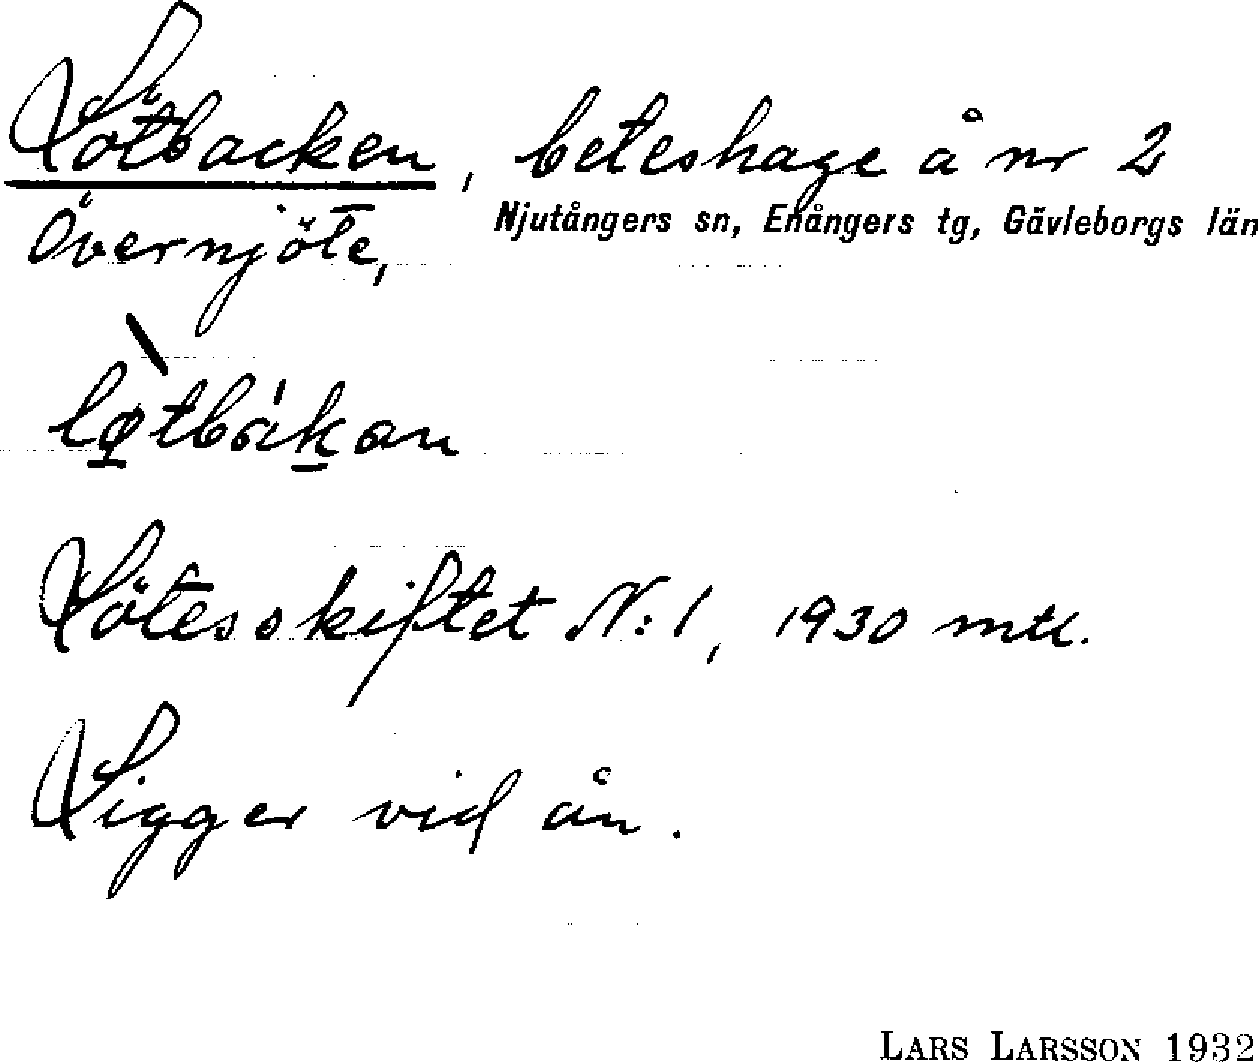 Lötbacken, beteshage å nr 2
Njutångers sn, Enångers tg, Gävleborgs län
Övernjöte,
Lötesskiftet N:1, 1930 mtl.
Ligger vid ån.
LARS LARSSON 1932